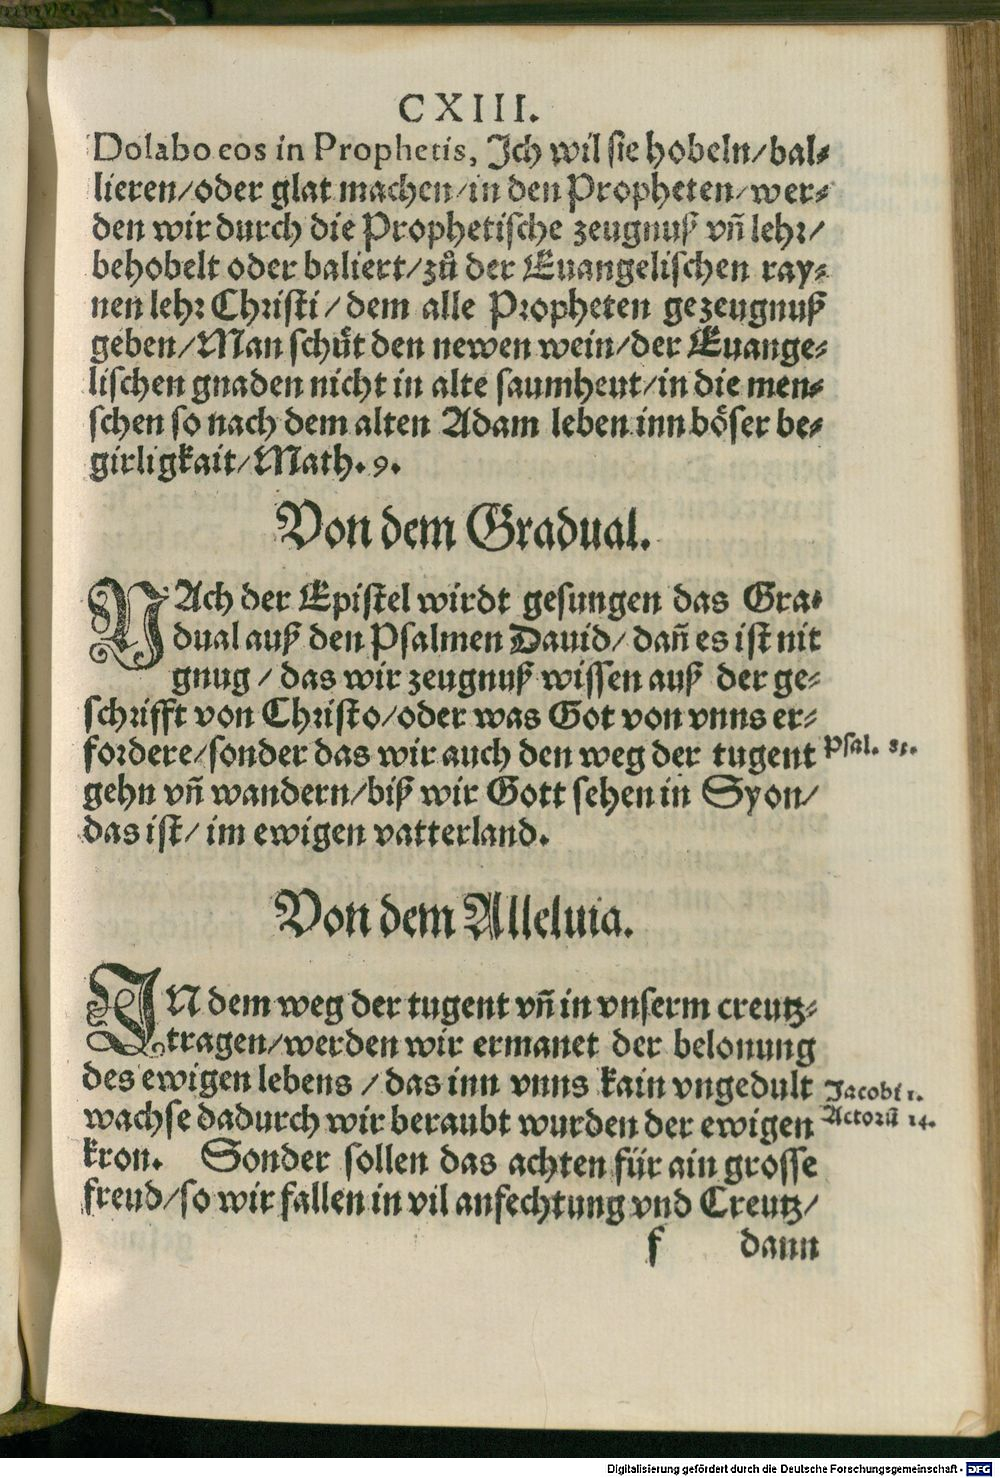 CXIII.
Dolabo eos in Prophetis, Jch wil sie hobeln/bal⸗
lieren/oder glat machen/in den Propheten/wer⸗
den wir durch die Prophetische zeugnuß vñ lehr/
behobelt oder baliert/zů der Euangelischen ray⸗
nen lehr Christi/dem alle Propheten gezeugnuß
geben/Man schüt den newen wein/der Euange⸗
lischen gnaden nicht in alte saumheut/in die men⸗
schen so nach dem alten Adam leben inn böser be⸗
girligkait/Math. 9.
Von dem Gradual.
NAch der Epistel wirdt gesungen das Gra⸗
dual auß den Psalmen Dauid/dañ es ist nit
gnug/das wir zeugnuß wissen auß der ge⸗
schrifft von Christo/oder was Got von vnns er⸗
fordere/sonder das wir auch den weg der tugent
Psal.
gehn vñ wandern/biß wir Gott sehen in Syon/
das ist/im ewigen vatterland.
Von dem Alleluia.
IN dem weg der tugent vñ in vnserm creutz⸗
tragen/werden wir ermanet der belonung
des ewigen lebens/das inn vnns kain vngedult
Jacobi 1.
wachse dadurch wir beraubt wurden der ewigen
Actorū 14.
kron. Sonder sollen das achten für ain grosse
freud/so wir fallen in vil anfechtung vnd Creutz/
f dann
Digitalisierung gefördert durch die Deutsche Forschungsgemeinschaft - DFG